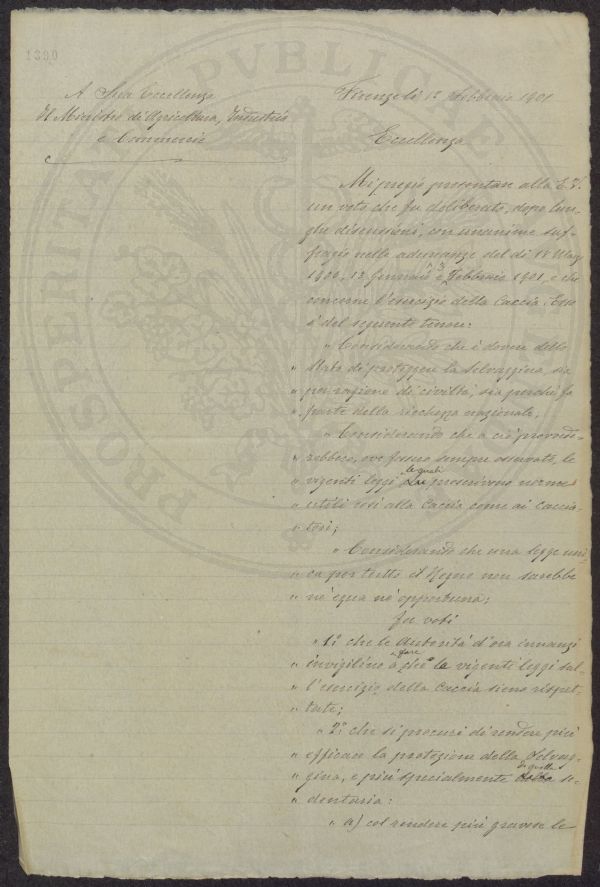 1390
PROSPERITATI PVBLICAE
A Sua Eccellenza
Il Ministro di Agricoltura, Industria
e Commercio
Firenze li 12 Febbraio 1901
Eccellenza
Mi pregio presentare alla E. V.
un voto che fu deliberato, dopo lun-
ghe discussioni, con unanime suf-
fragio nelle adunanze del dì 18 Marzo
1900, 13 Gennaio e 3 Febbraio 1901, e che
concerne l'esercizio della Caccia. Esso
è del seguente tenore:
" Considerando che è dovere dello
" Stato di proteggere la selvaggina, sia
" per ragione di civiltà, sia perchè fa
" parte della ricchezza nazionale,
" Considerando che a ciò provvede-
" rebbero, ove fossero sempre osservate, le
" vigenti leggi le quali prescrivono norme
" utili così alla Caccia come ai Caccia-
" tori;
" Considerando che una legge uni-
" ca per tutto il Regno non sarebbe
" nè equa nè opportuna;
fa voti
" 1º che le Autorità d'ora innanzi
" invigilino a far che le vigenti leggi sul-
" l'esercizio della Caccia sieno rispet-
" tate;
" 2º che si procuri di rendere più
" efficace la protezione della selvag-
" gina, e più specialmente di quella se-
" dentaria:
" a) col rendere più gravose le